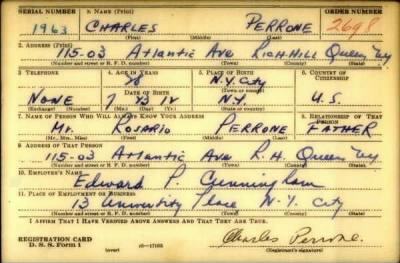 SERIAL NUMBER 1. NAME (Print) ORDER NUMBER
1963 CHARLES PERRONE 2698
(First) (Middle) (Last)
2. ADDRESS (Print)
115-03 Atlantic Ave Rich.Hill Queens NY
(Number and street or R. F. D. number) (Town) (County) (State)
3. TELEPHONE 4. AGE IN YEARS 5. PLACE OF BIRTH 6. COUNTRY OF CITIZENSHIP
28 N.Y. City
DATE OF BIRTH (Town or county)
None 7 12 N.Y. U.S.
(Exchange) (Number) (Mo.) (Day) (Yr.) (State or country)
7. NAME OF PERSON WHO WILL ALWAYS KNOW YOUR ADDRESS 8. RELATIONSHIP OF THAT PERSON
Mr. Rosario PERRONE FATHER
(Mr., Mrs., Miss) (First) (Middle) (Last)
9. ADDRESS OF THAT PERSON
115-03 Atlantic Ave R.H. Queens NY
(Number and street or R. F. D. number) (Town) (County) (State)
10. EMPLOYER'S NAME
Edward P. Cunningham
11. PLACE OF EMPLOYMENT OR BUSINESS
13 University Place N.Y. City
(Number and street or R. F. D. number) (Town) (County) (State)
I AFFIRM THAT I HAVE VERIFIED ABOVE ANSWERS AND THAT THEY ARE TRUE.
REGISTRATION CARD
D. S. S. Form 1 (over) 16-17105 Charles Perrone.
(Registrant's signature)